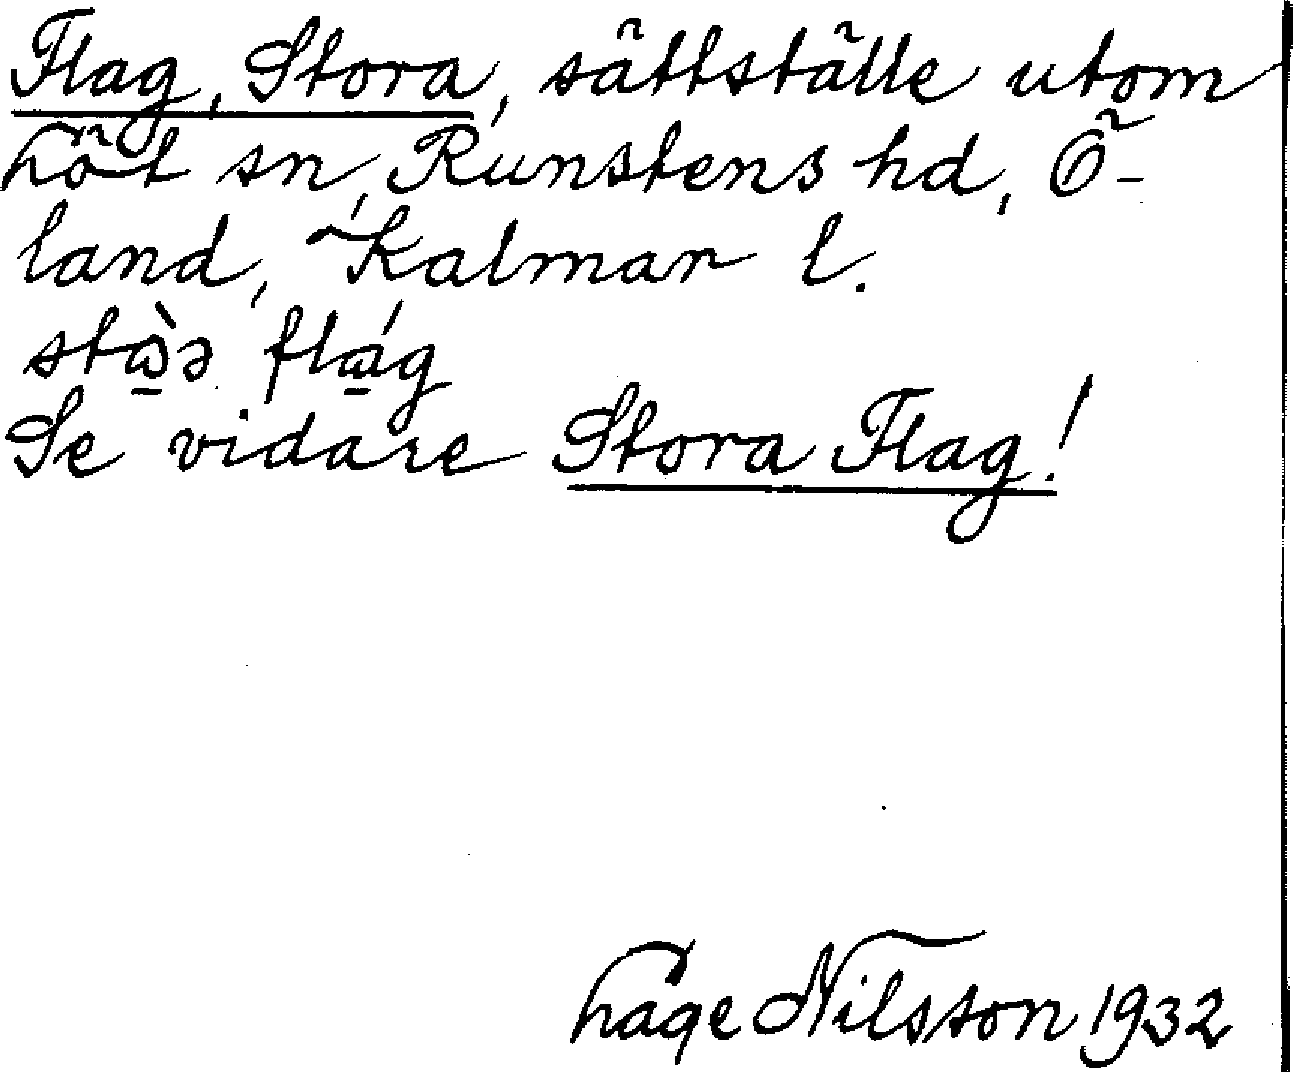 Flag, Stora, sättställe utom
Löt sn, Runstens hd, Ö-
land, Kalmar l.
Se vidare Stora Flag!
Låge Nilsson 1932